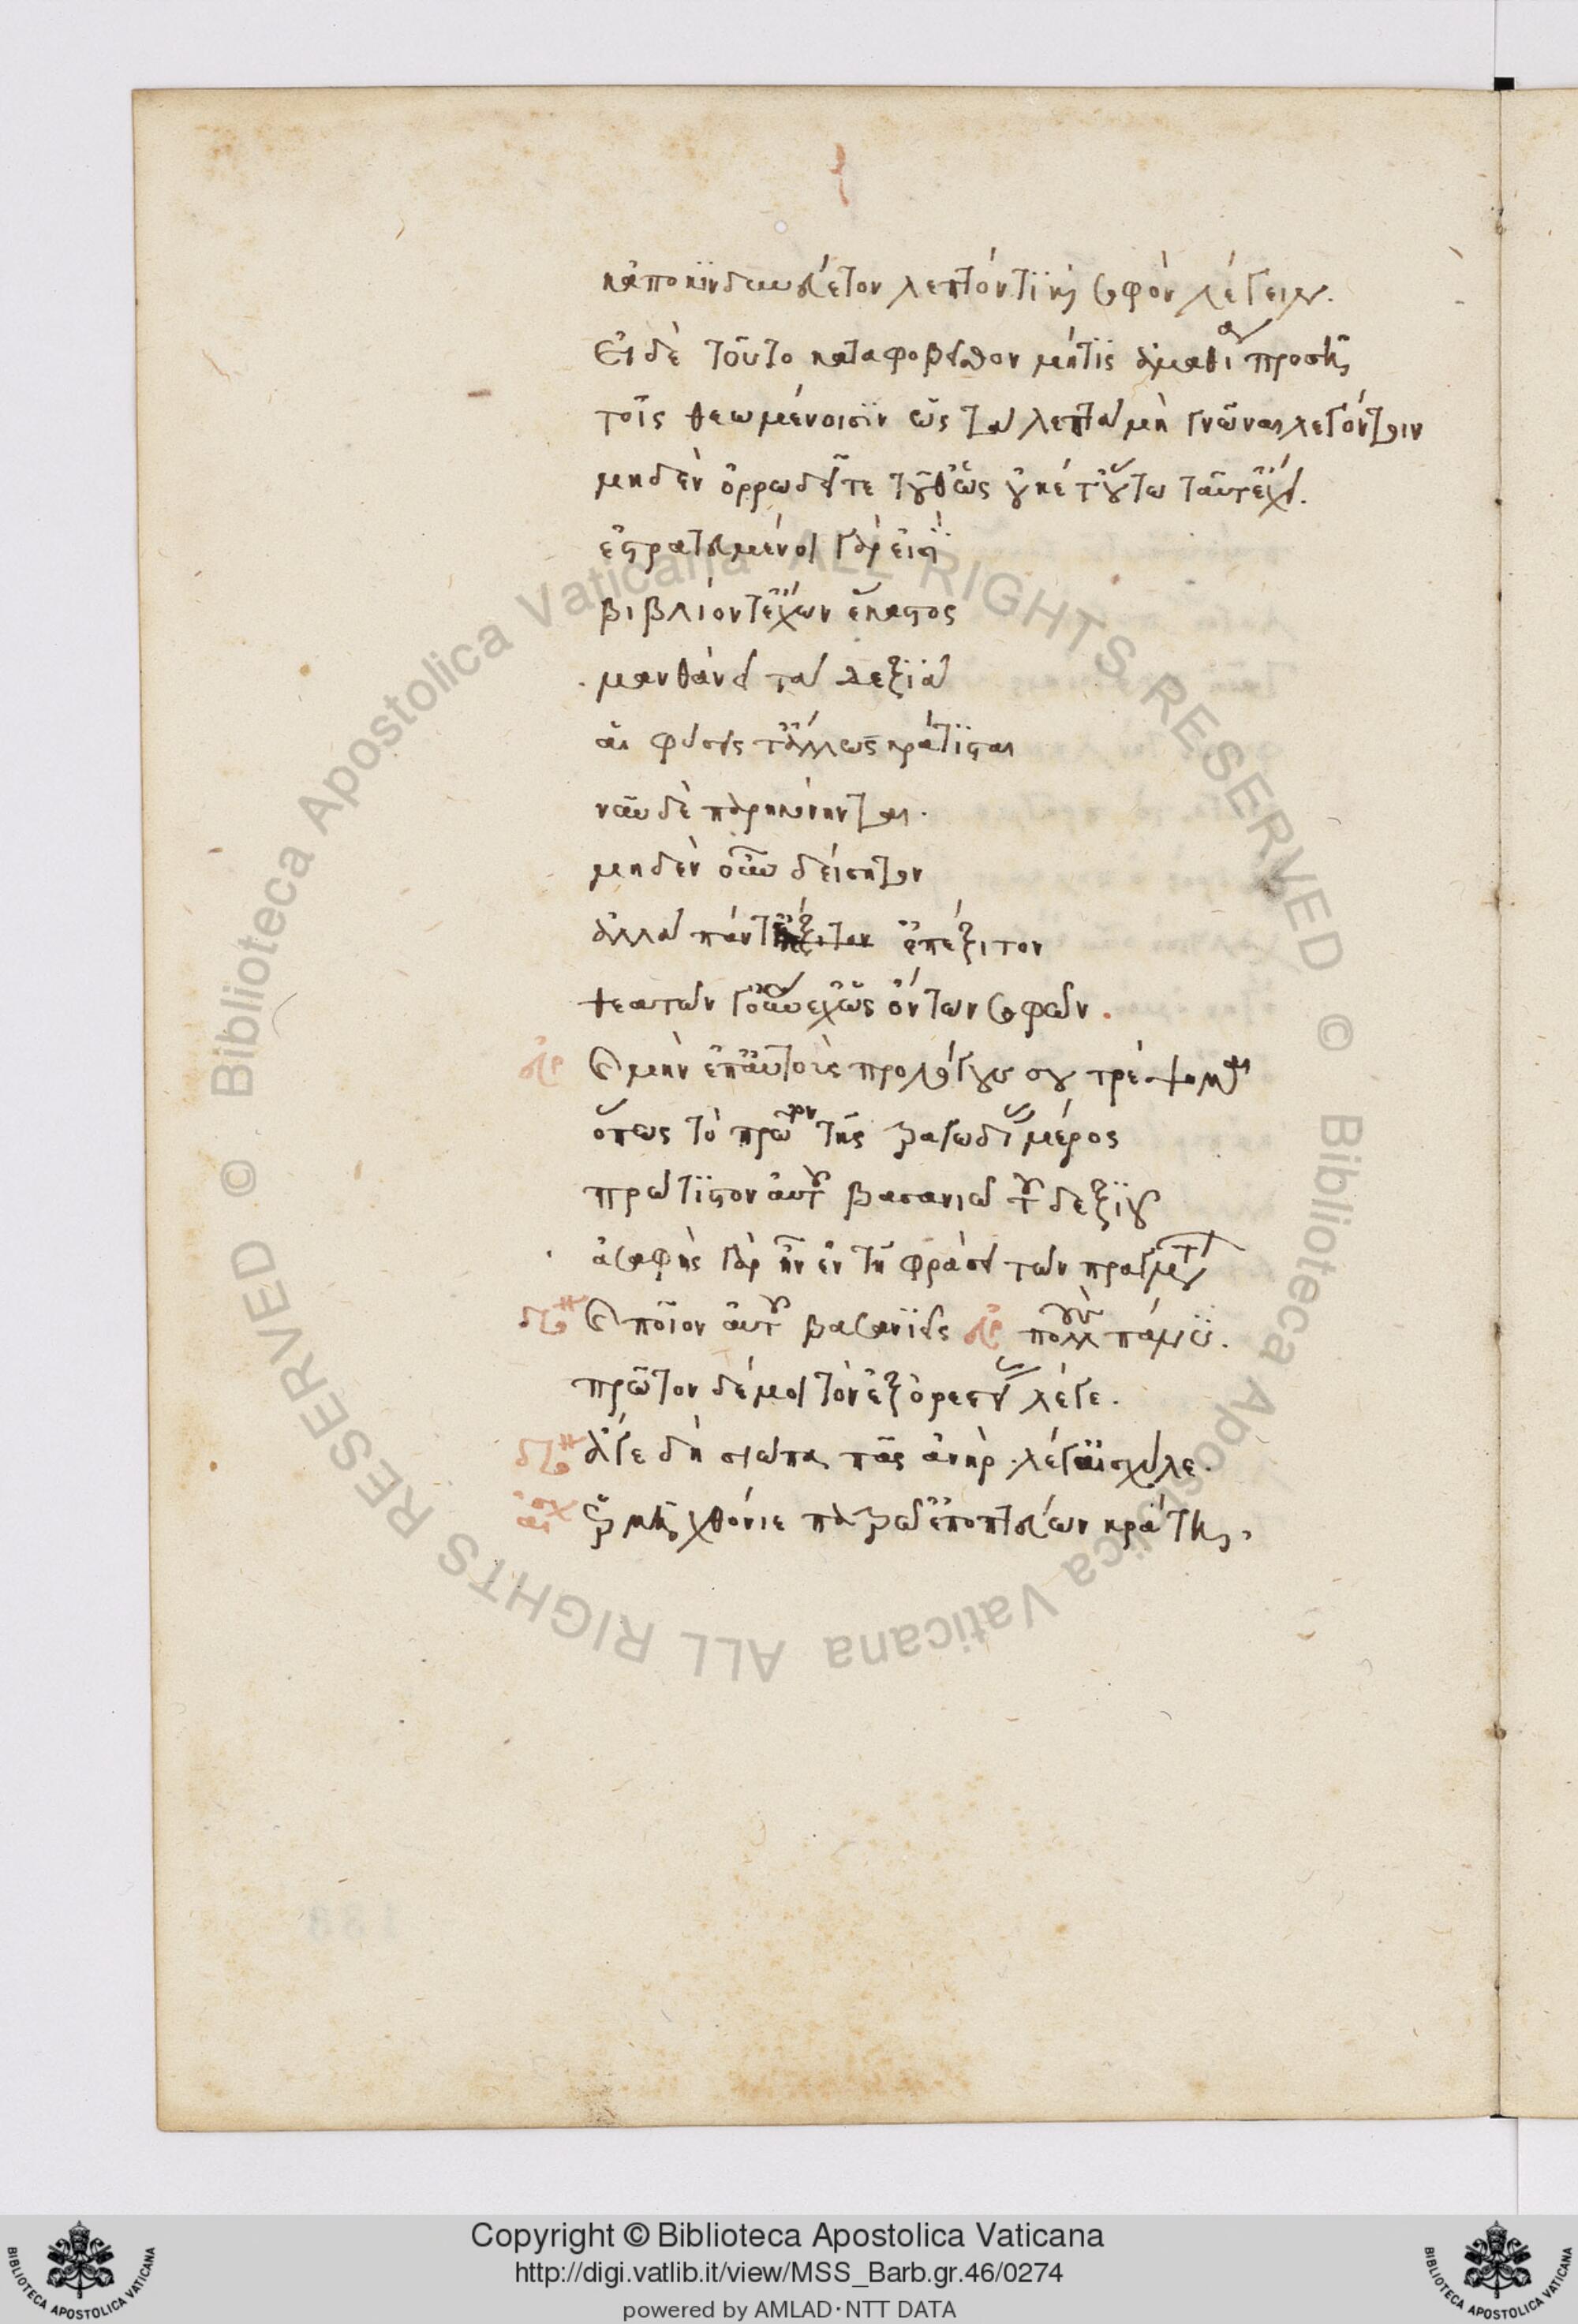 κἀποκινδυνεύετον λεπτόν τι καὶ σοφὸν λέγειν.
Εἰ δὲ τοῦτο καταφοβεῖσθον μή τις ἀμαθία προσῆ
τοῖς θεωμένοισιν ὡς τὰ λεπτὰ μὴ γνῶναι λεγόντοιν
μηδὲν ὀρρωδεῖτε τοῦθ' ὡς οὐκέτ' οὕτω ταῦτ' ἔχει.
ἐστρατευμένοι γάρ εἰσι
βιβλίον τ' ἔχων ἕκαστος
μανθάνει τὰ δεξιά
αἱ φύσεις τ' ἄλλως κράτισται
νῦν δὲ παρηκόνηνται.
μηδὲν οὖν δείσητον
ἀλλὰ πάντ' ἐπέξιτον
θεατῶν γ' οὕνεχ' ὡς ὄντων σοφῶν.
ευρ Καὶ μὴν ἐπ' αὐτοὺς προλόγους σου τρέψομαι
ὅπως τὸ πρῶτον τῆς τραγωδίας μέρος
πρώτιστον αὐτοῦ βασανιῶ τοῦ δεξιοῦ
ἀσαφὴς γὰρ ἦν ἐν τῇ φράσει τῶν πραγμάτων
διο Καὶ ποῖον αὐτοῦ βασανιεῖς ευρ πολλοὺς πάνυ.
πρῶτον δέ μοι τὸν ἐξ ὀρεστείας λέγε.
διο ἄγε δὴ σιώπα πᾶς ἀνήρ. λέγ' αἰσχύλε.
αισχ Ἑρμῆ χθόνιε πατρῷ' ἐποπτεύων κράτη,
Biblioteca Apostolica Vaticana ALL RIGHTS RESERVED ©
Biblioteca Apostolica Vaticana ALL RIGHTS RESERVED ©
Copyright © Biblioteca Apostolica Vaticana
http://digi.vatlib.it/view/MSS_Barb.gr.46/0274
powered by AMLAD·NTT DATA
BIBLIOTECA APOSTOLICA VATICANA
BIBLIOTECA APOSTOLICA VATICANA